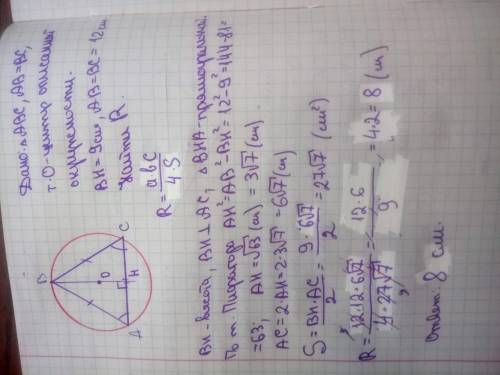 Дано: △ABC, AB=BC,
т.О-центр описанной
окружности.
BH=9см, AB=BC=12см
Найти R.
R = abc / 4S
B
O
A
H
C
BH-высота, BH⊥AC, △BHA-прямоугольный.
По т. Пифагора AH²=AB²-BH²=12²-9²=144-81=
=63; AH=√63 (см) = 3√7 (см).
AC=2·AH=2·3√7=6√7 (см)
S = BH·AC / 2 = 9·6√7 / 2 = 27√7 (см²)
R = 12·12·6√7 / 4·27√7 = 12·6 / 9 = 4·2=8 (см)
Ответ: 8 см.